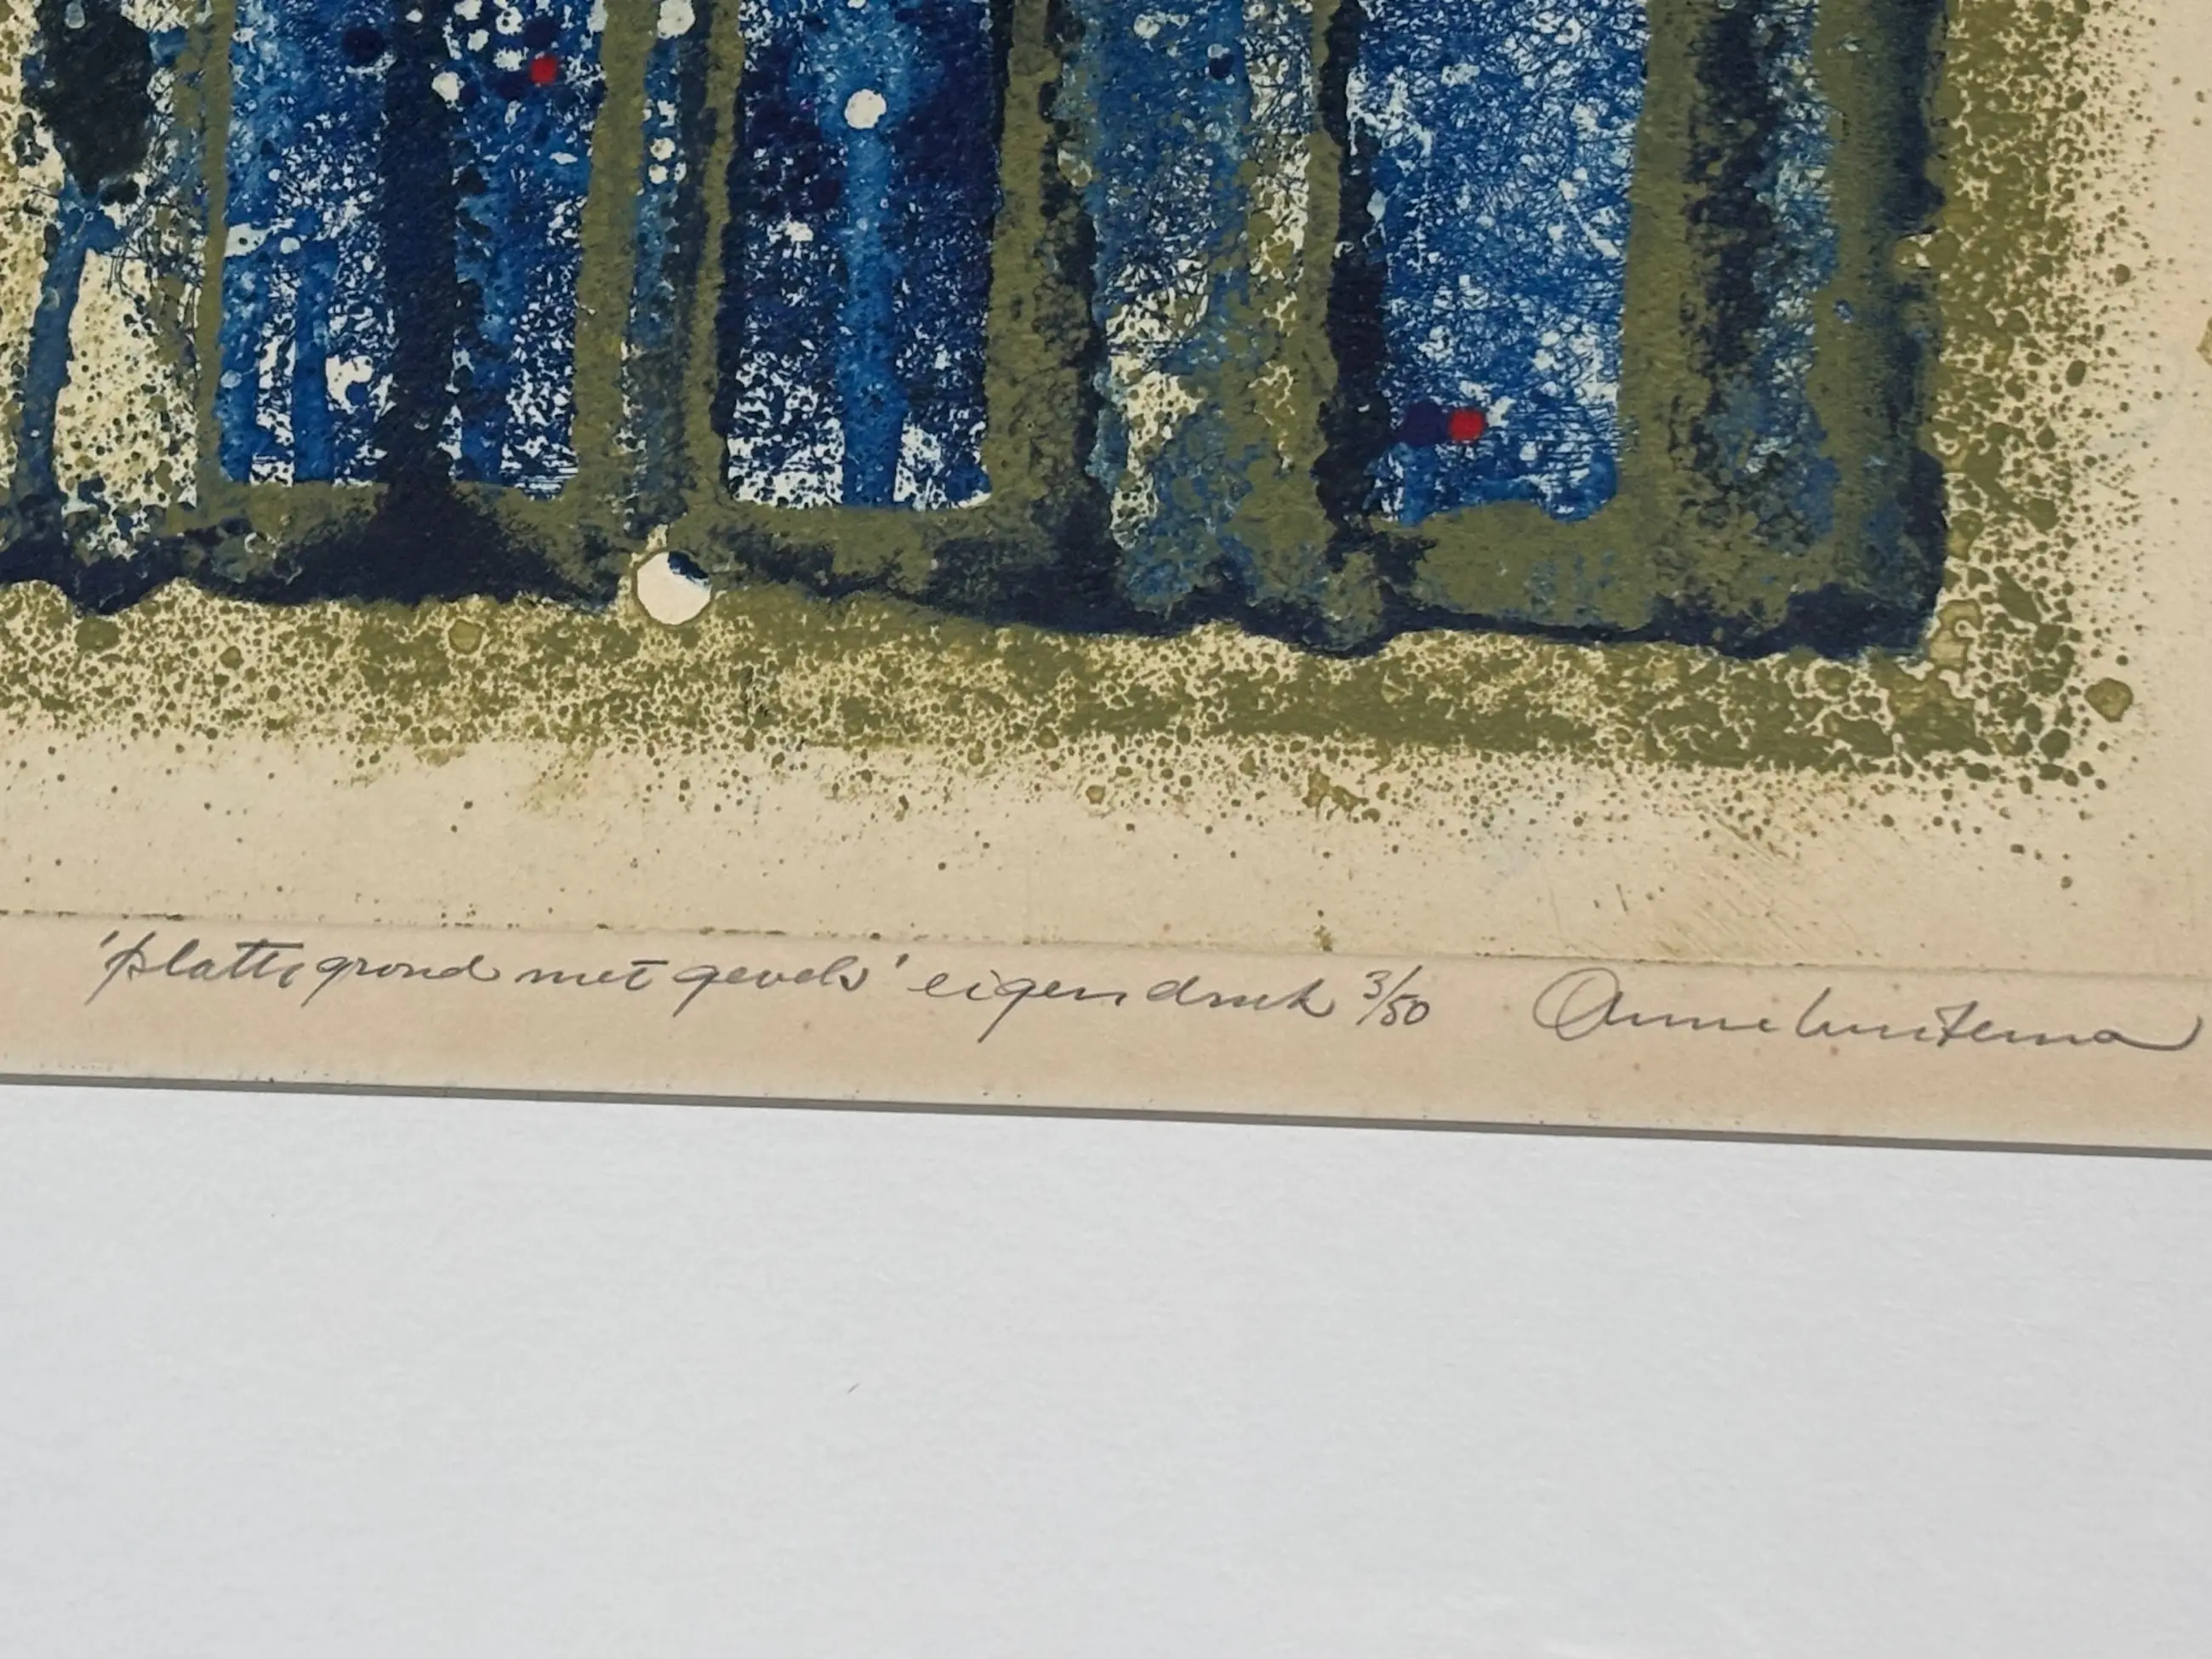 'plattegrond met gevels' eigen druk 3/50 Anne Luitema